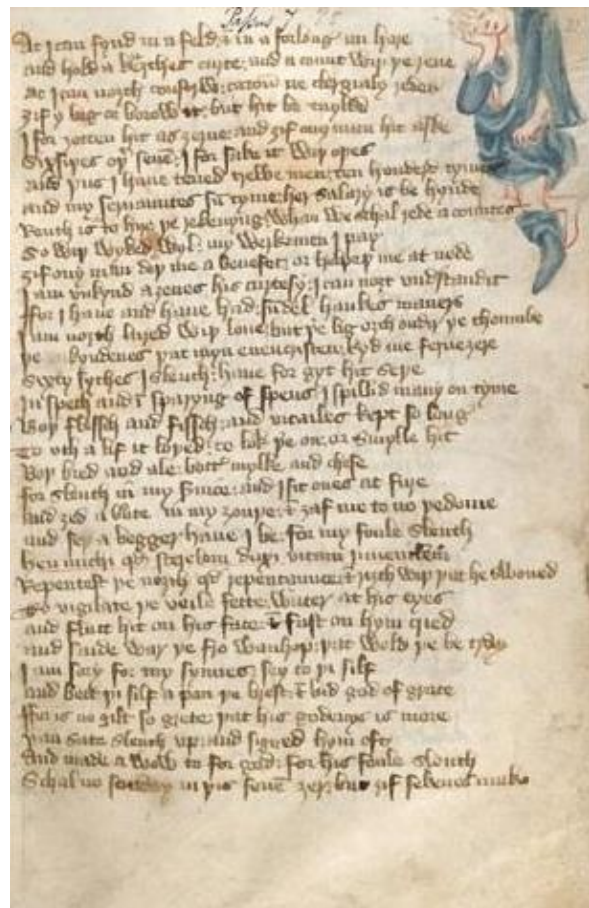 Passus 7
At I can fynd in a feld & in a forlong an hare
and hold a knythes curte and acount wiþ þe reue
ac I can noȝth constru catoun ne clergialy reden
ȝif y big or borow it but hit be tayled
I for ȝotten hit as ȝerne and ȝif ony man hit aske
Sixsiþes oþer seuen I for sake it wiþ oþes
and þus I haue tened trewe men ten hondred tymes
and my seruauntes sum tyme her salary is be hynde
Reuth is to hyre þe rekenyng whan we schal rede acountes
So wiþ wyked wyl my werkemen I pay
ȝif ony man doþ me a benefet or helpeþ me at nede
I am vnkynd aȝenes his curtesy I can noȝt vndstand it
For I haue and haue had sumdel haukes maners
I am noȝth lured wiþ loue but þer lig oȝth ondyr þe thombe
þe kyndenes þat myn euencristen kyd me ferneȝere
Sixty syþes I sleuth haue for ȝyt hit seþe
In spech and in sparyng of spens I spillid many on tyme
Boþ flessch and fissch and vitailes kept so long
To vch a lif it loþed to loke þer on or smylle hit
Boþ bred and ale bottr mylke and chese
for sleuth in my seruice and I sit ones at fire
and ȝed a bute in my ȝouþe & ȝaf me to no þedome
and seþ a begger haue I be for my foule sleuth
heu michi qd sterelem duxi vitam iuuentlem
Repentest þe noȝth qd repentaunce & riȝth wiþ þat he swoned
To vigilate þe veile fette water at his eyes
and flatt hit on his face & fast on hym cried
and saide war þe fro wanhop þat wold þe be tray
I am sory for my synnes sey to þi silf
and bett þi silf a pan þe brest & bid god of grace
For is no gilt so grete þat his godenes is more
þan sate sleuth vp and signed hym oft
And made a wow to for god for his foule sleuth
Schal no sonday in þis seuen ȝer but ȝif sekenes make